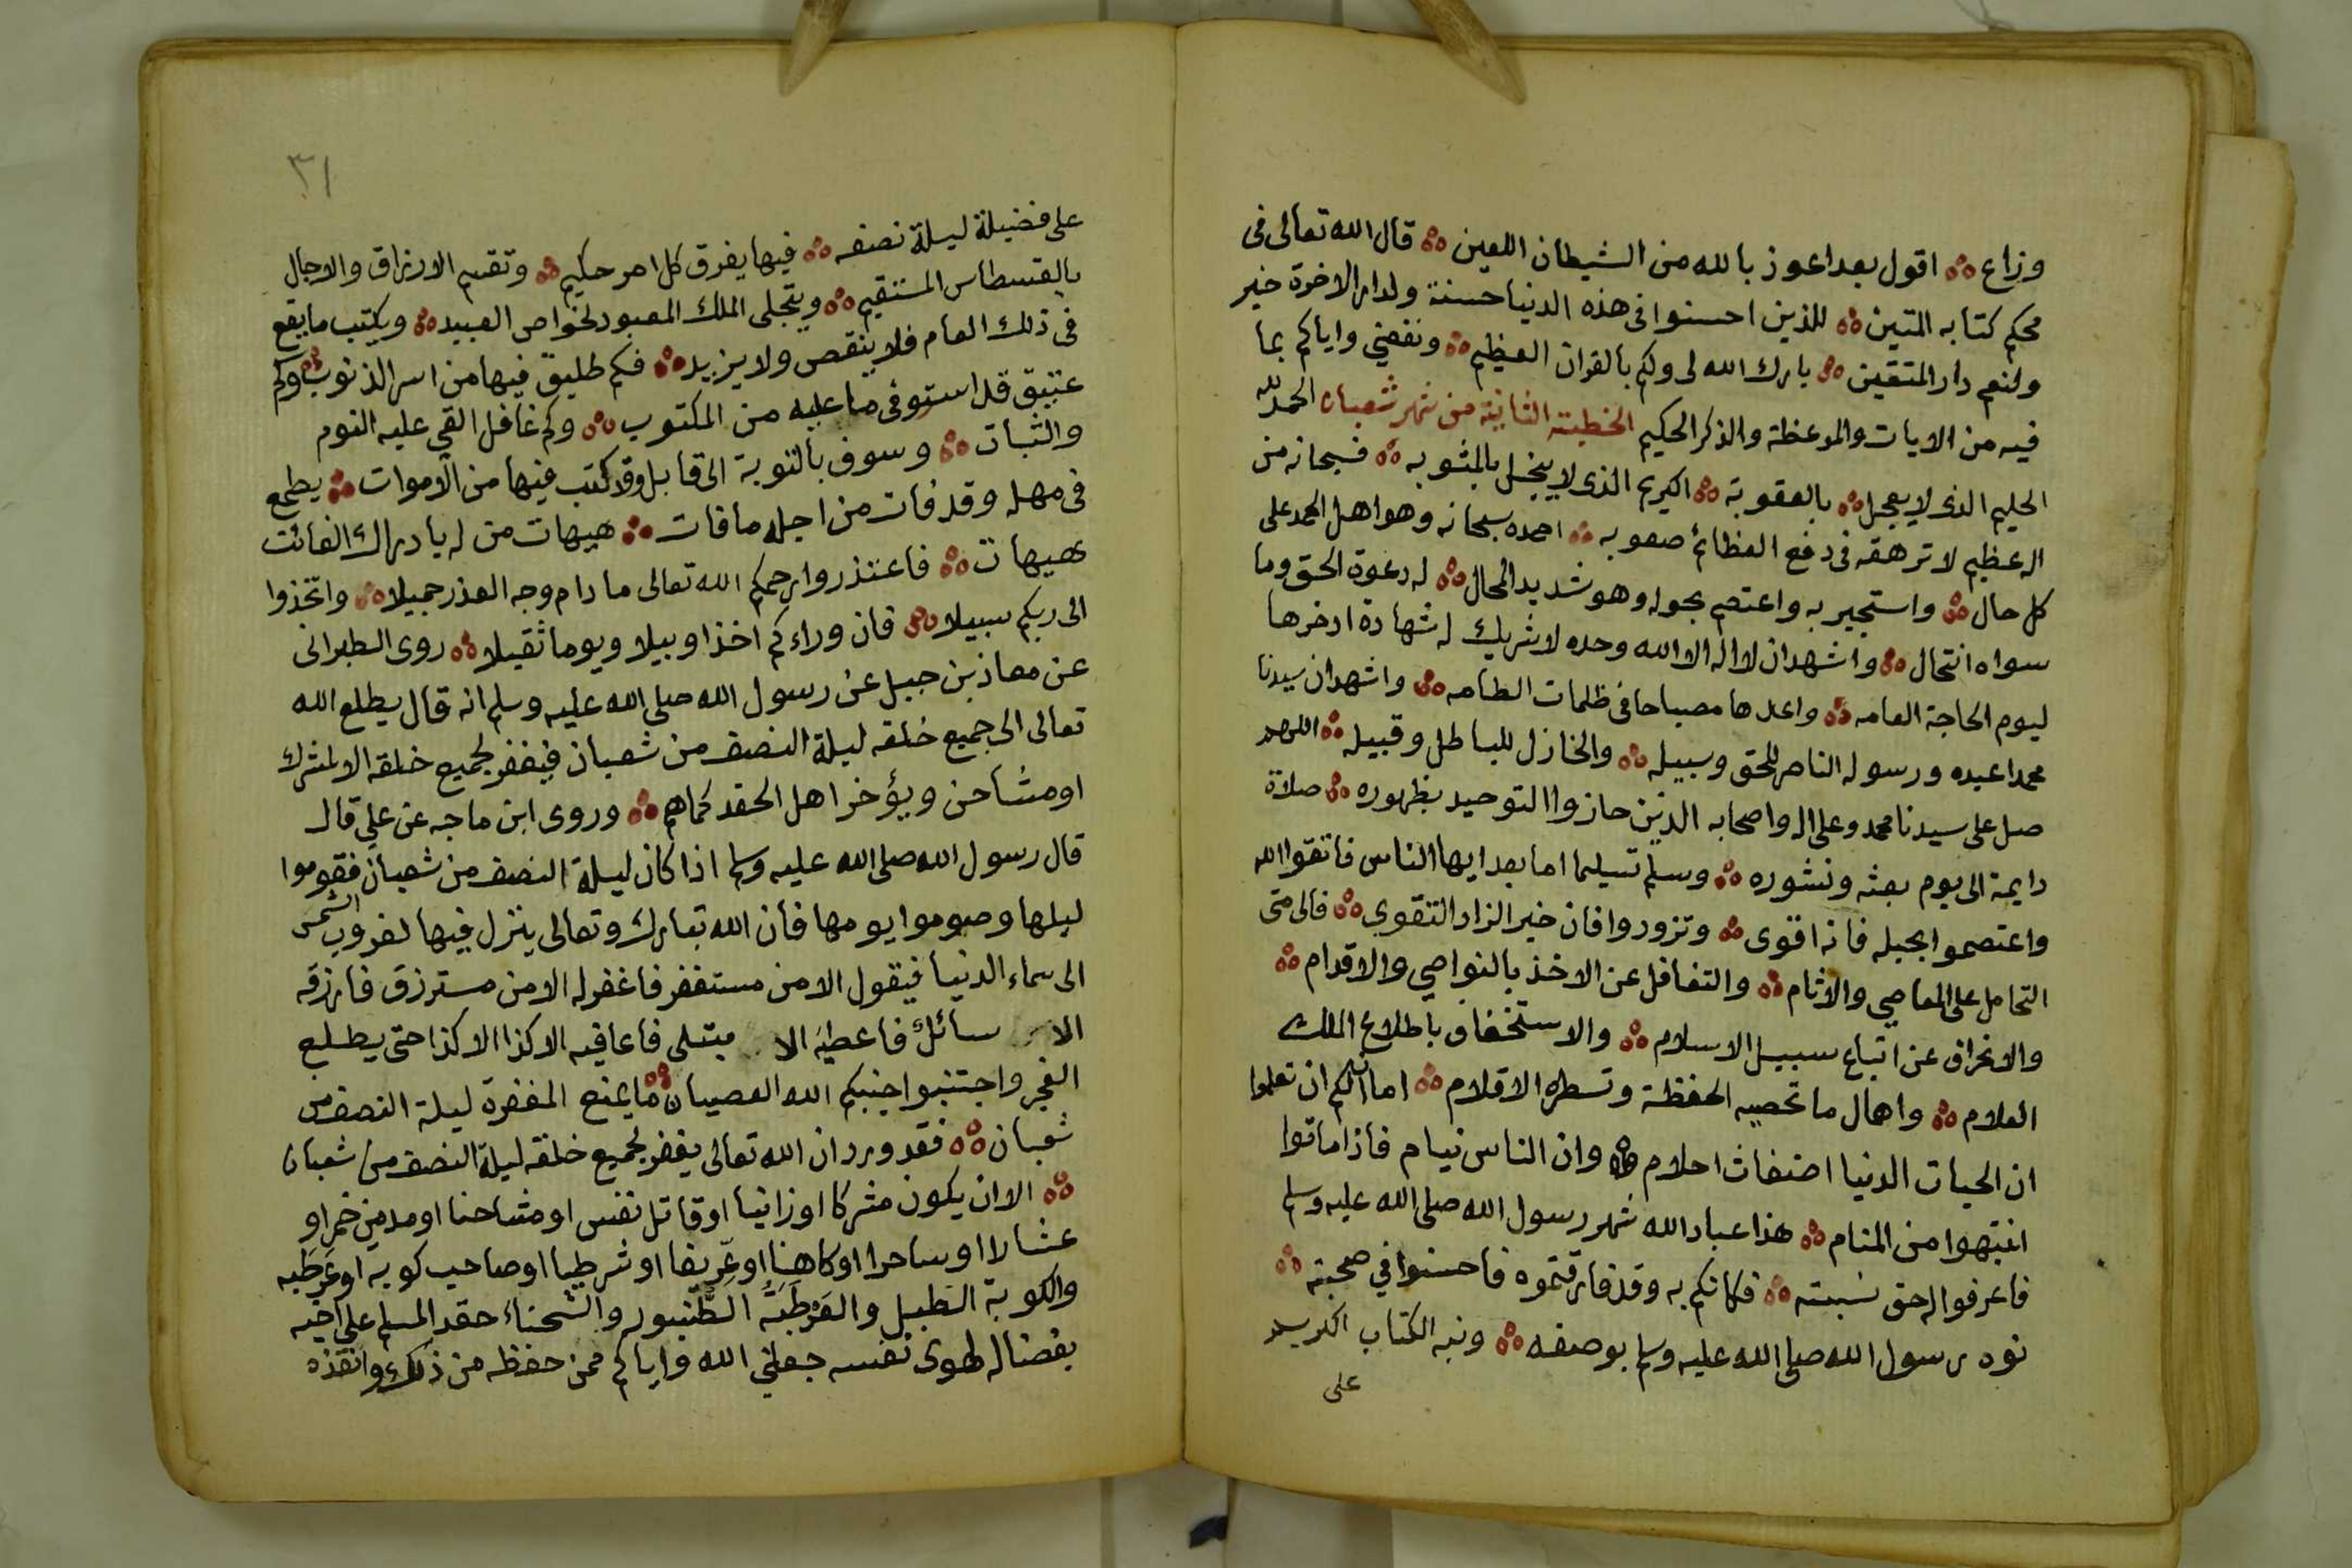 وزاع ۞ اقول بعد اعوذ بالله من الشيطان اللعين ۞ قال الله تعالى فى
محكم كتابه المتين ۞ للذين احسنوا فى هذه الدنيا حسنة ولدار الاخرة خير
ولنعم دار المتقين ۞ بارك الله لى ولكم بالقران العظيم ۞ ونفعني واياكم بما
فيه من الايات والموعظة والذكر الحكيم الخطبة الثانية من شهر شعبان الحمد لله
الحليم الذى لا يعجل ۞ بالعقوبة ۞ الكريم الذى لا يبخل بالمثوبه ۞ فسبحانه من
اله عظيم لا ترهقه فى دفع العظائم صعوبه ۞ احمده سبحانه وهو اهل الحمد على
كل حال ۞ واستجير به واعتصم بحوله وهو شديد المحال ۞ له دعوة الحق وما
سواه انتحال ۞ واشهد ان لا اله الا الله وحده لا شريك له شهادة ادخرها
ليوم الحاجة العامه ۞ واعدها مصباحا فى ظلمات الطامه ۞ واشهد ان سيدنا
محمدا عبده ورسوله الناصر للحق وسبيله ۞ والخاذل للباطل وقبيله ۞ اللهم
صل على سيدنا محمد وعلى اله واصحابه الذين حازوا التوحيد بظهوره ۞ صلاة
دايمة الى يوم بعثه ونشوره ۞ وسلم تسليما اما بعد ايها الناس فاتقوا الله
واعتصموا بحبله فانه اقوى ۞ وتزودوا فان خير الزاد التقوى ۞ فالى متى
التحامل على المعاصي والاثام ۞ والتغافل عن الاخذ بالنواصي والاقدام ۞
والانحراف عن اتباع سبيل الاسلام ۞ والاستخفاف باطلاع الملك
العلام ۞ واهمال ما تحصيه الحفظة وتسطره الاقلام ۞ اما ان لكم ان تعلموا
ان الحيات الدنيا اضغاث احلام ۞ وان الناس نيام فاذا ماتوا
انتبهوا من المنام ۞ هذا عباد الله شهر رسول الله صلى الله عليه وسلم
فاعرفوا له حق نسبته ۞ فكانكم به وقد فارقتموه فاحسنوا في صحبته ۞
نوه رسول الله صلى الله عليه وسلم بوصفه ۞ ونبه الكتاب الكريم
على
٣١
على فضيلة ليلة نصفه ۞ فيها يفرق كل امر حكيم ۞ وتقسم الارزاق والاجال
بالقسطاس المستقيم ۞ ويتجلى الملك المعبود لخواص العبيد ۞ ويكتب ما يقع
فى ذلك العام فلا ينقص ولا يزيد ۞ فكم طليق فيها من اسر الذنوب ۞ وكم
عتيق قد استوفى ما عليه من المكتوب ۞ وكم غافل القي عليه النوم
والثبات ۞ وسوف بالتوبة الى قابل وقد كتب فيها من الاموات ۞ يطمع
فى مهله وقد فات من اجله ما فات ۞ هيهات من له بادراك الفائت
هيهات ۞ فاعتذروا رحمكم الله تعالى ما دام وجه العذر جميلا ۞ واتخذوا
الى ربكم سبيلا ۞ فان وراءكم اخذا وبيلا ويوما ثقيلا ۞ روى الطبرانى
عن معاذ بن جبل عن رسول الله صلى الله عليه وسلم انه قال يطلع الله
تعالى الى جميع خلقه ليلة النصف من شعبان فيغفر لجميع خلقه الا لمشرك
او مشاحن ويؤخر اهل الحقد كماهم ۞ وروى ابن ماجه عن علي قال
قال رسول الله صلى الله عليه وسلم اذا كان ليلة النصف من شعبان فقوموا
ليلها وصوموا يومها فان الله تبارك وتعالى ينزل فيها لغروب الشمس
الى سماء الدنيا فيقول الا من مستغفر فاغفر له الا من مسترزق فارزقه
الا من سائل فاعطيه الا مبتلى فاعافيه الا كذا الا كذا حتى يطلع
الفجر واجتنبوا جنبكم الله العصيان ۞ ما يمنع المغفرة ليلة النصف من
شعبان ۞ فقد ورد ان الله تعالى يغفر لجميع خلقه ليلة النصف من شعبان
۞ الا ان يكون مشركا او زانيا او قاتل نفس او مشاحنا او مدمن خمر او
عشارا او ساحرا او كاهنا او عريفا او شرطيا او صاحب كوبه او عرطبه
والكوبة الطبل والعرطبة الطنبور والشحناء حقد المسلم على اخيه
بغضا له لهوى نفسه جعلني الله واياكم ممن حفظه من ذلك وانقذه